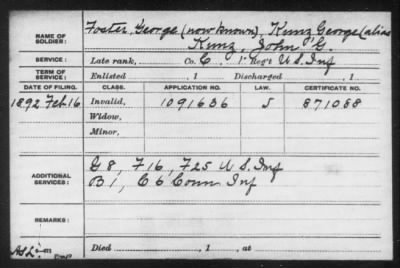 NAME OF SOLDIER:
Foster, George (now known), Kunz, George (alias
Kunz, John G.
SERVICE: Late rank, Co. C, 1" Reg't U S. Inf
TERM OF SERVICE: Enlisted , 1 Discharged , 1
DATE OF FILING. CLASS. APPLICATION NO. LAW. CERTIFICATE NO.
1892 Feb. 16 Invalid, 1091636 J 871088
Widow,
Minor,
ADDITIONAL SERVICES:
G 8, F 16, F 25 U S. Inf
B 1, C 6 Conn Inf
REMARKS:
Died , 1 , at